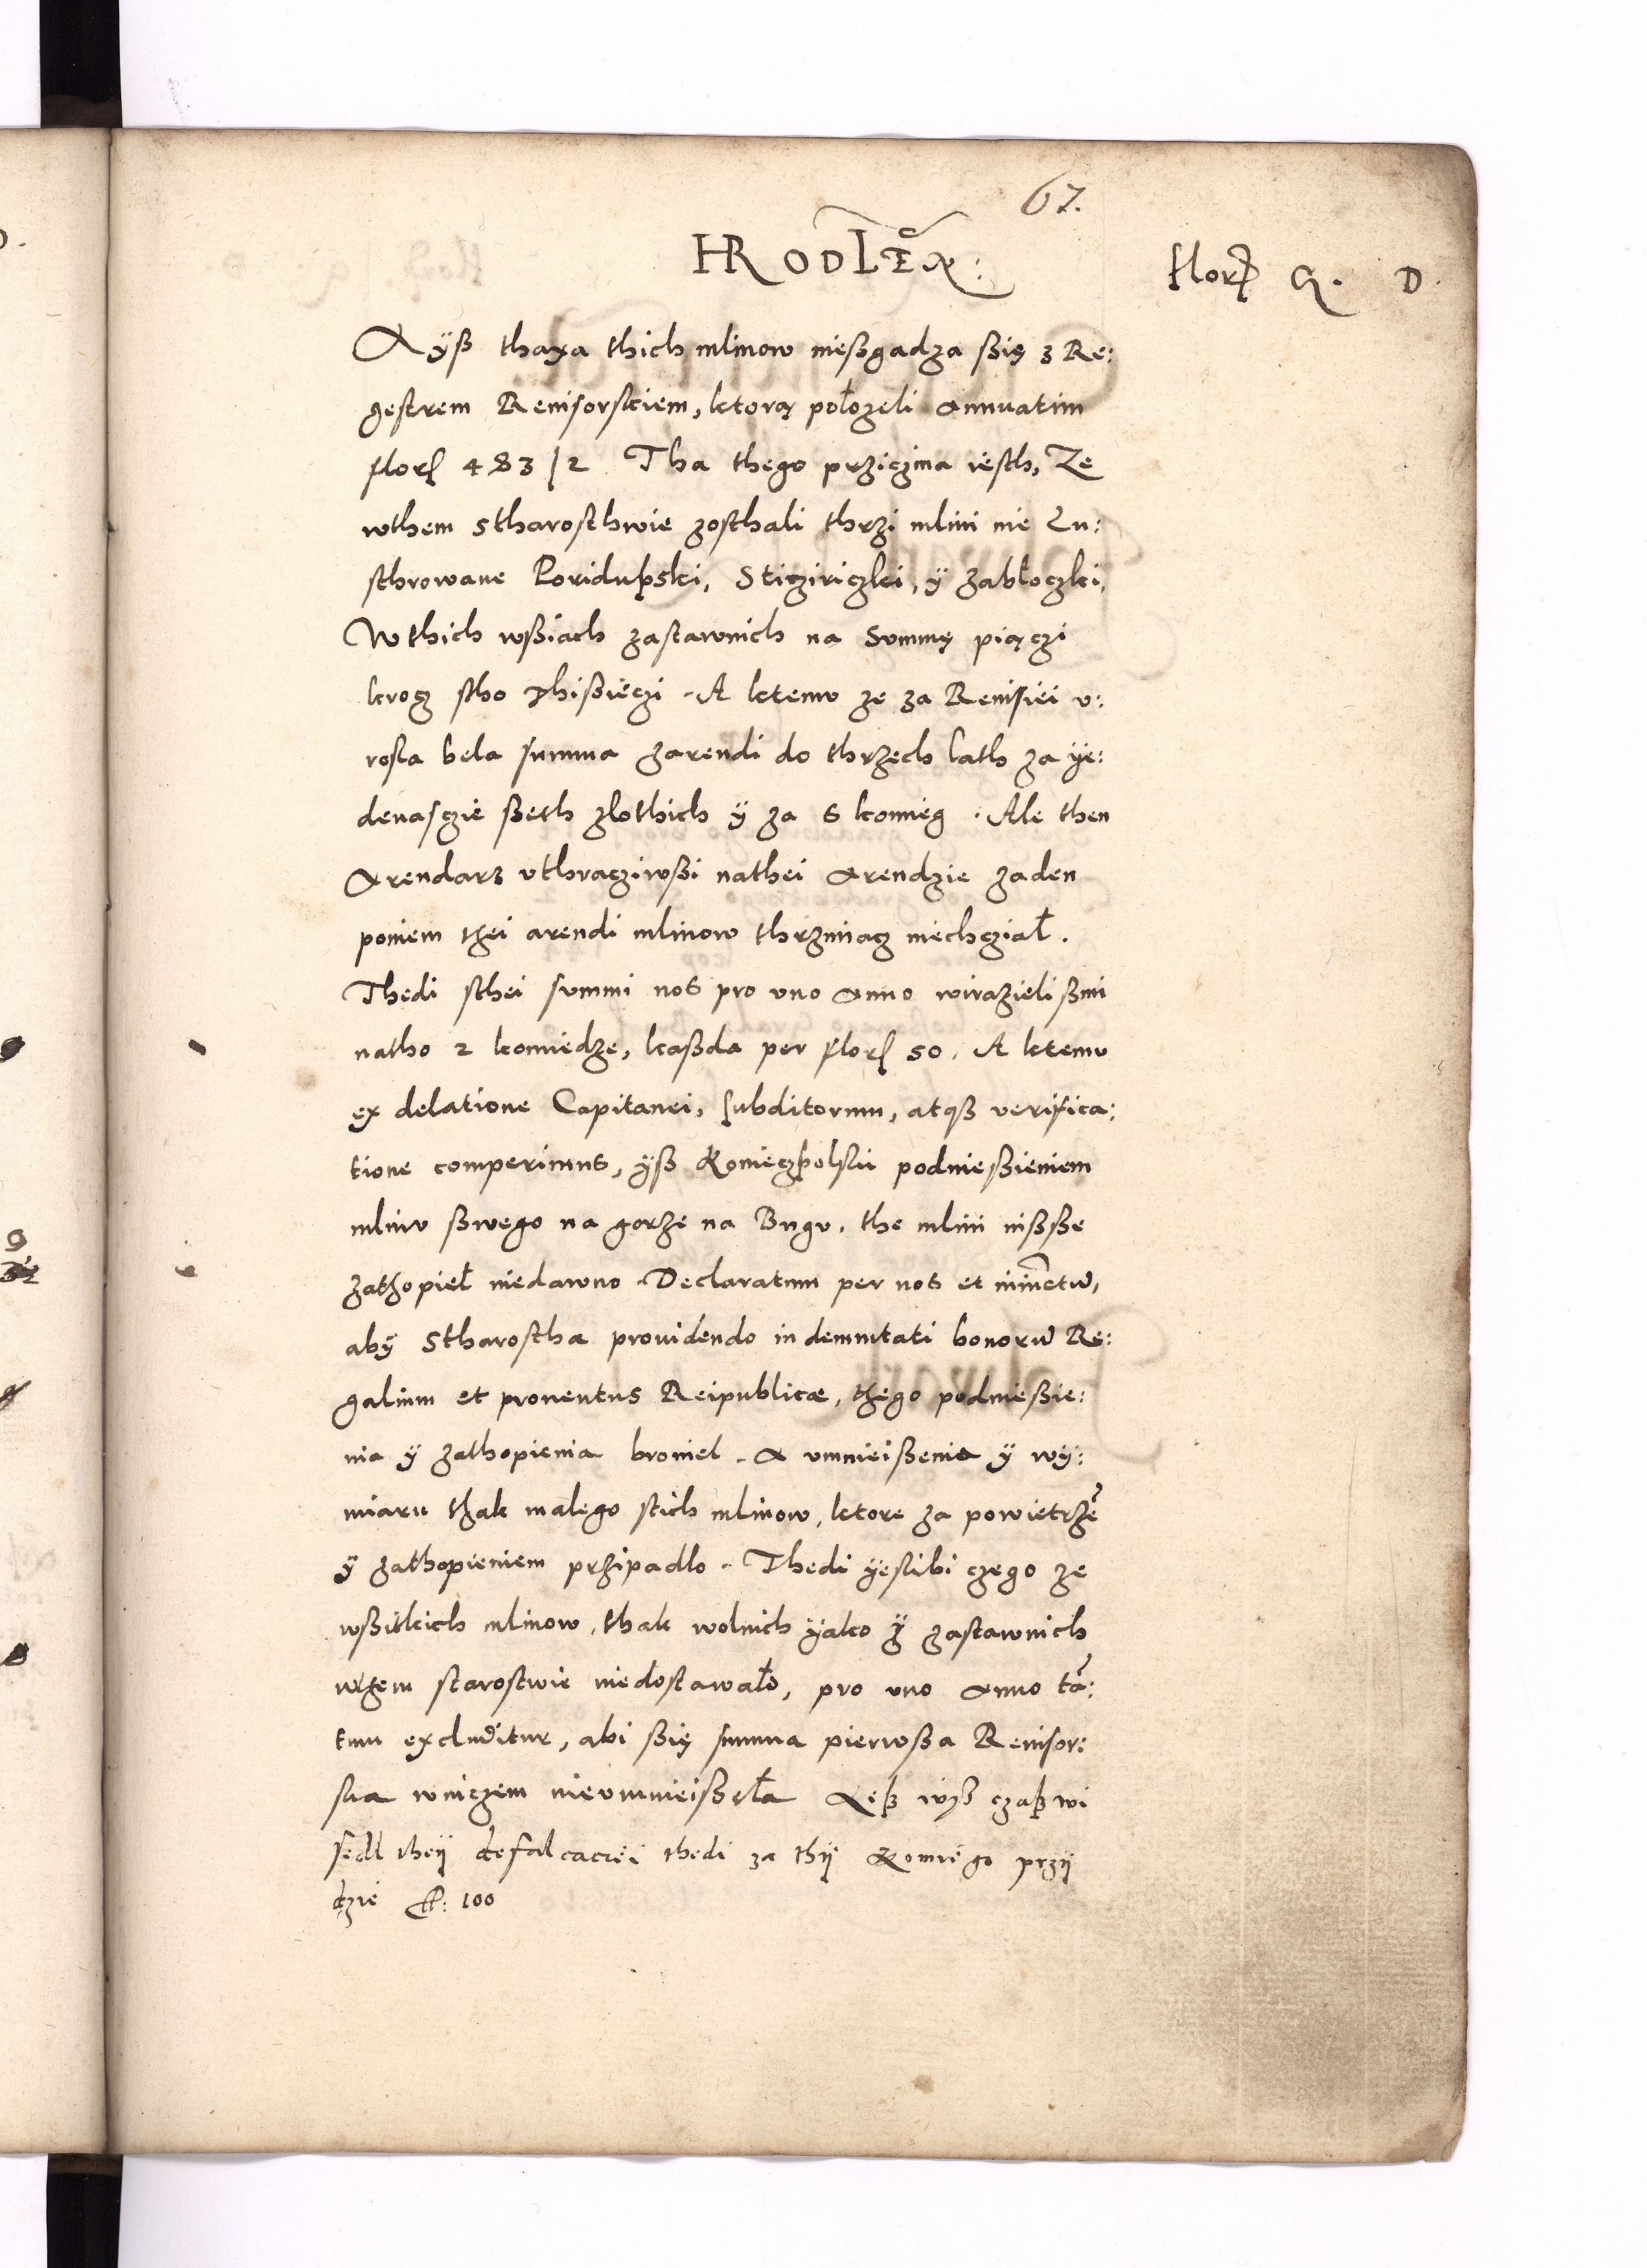 67.
HRODLEN:
Flor: G. D.
A yß thaxa thich mlinow nießgadza ßię z Re:
gestrem Reuisorskiem, ktorą położeli annuatim
flor 483/2 Tha thego prziczina iesth, Ze
wthem stharosthwie zosthali thrzi mlini nie Lu:
sthrowane Poridupski, Stizirizki, ÿ Zabłoczki,
W thich wßiach zastawnich na Summę pięczi
krocz stho thißięczi. A ktemu ze za Reuisiei u:
rosla bela summa zarendi do thrzech lath za ÿe:
denasczie ßeth zlothich ÿ za 6 komieg. Ale then
Arendarz uthracziwßi nathei Arendzie zaden
poniem thei arendi mlinow thrzimacz niechcział.
Thedi sthei summi nos pro uno Anno wirazielißmi
natho 2 komiedze, kaßda per flor 50. A ktemu
ex delatione Capitanei, subditorum, atqß verifica:
tione comperimus, ÿß Konieczpolski podnießieniem
mlinu ßwego na gorze na Bugu, the mlini nißße
zathopieł niedawno. Declaratum per nos et iniunctu,
abÿ Stharostha prouidendo indemnitati bonoru Re:
galium et prouentus Reipublicæ, thego podnießie:
nia ÿ zathopienia broniel. A umnießenia ÿ wÿ:
miaru thak malego stich mlinow, ktore za powietrze
ÿ zathopieniem przipadlo. Thedi ÿeslibi czego ze
wßitkich mlinow, thak wolnich ÿako ÿ zastawnich
wthem starostwie niedostawało, pro uno Anno ta:
tum excluditur, abi ßię summa pierwßa Reuisor:
ska wniczem nieumnießeła Leß wÿß czaß wi
sedl theÿ defalcaciei thedi za thÿ Komiego przÿ
dzie fl: 100